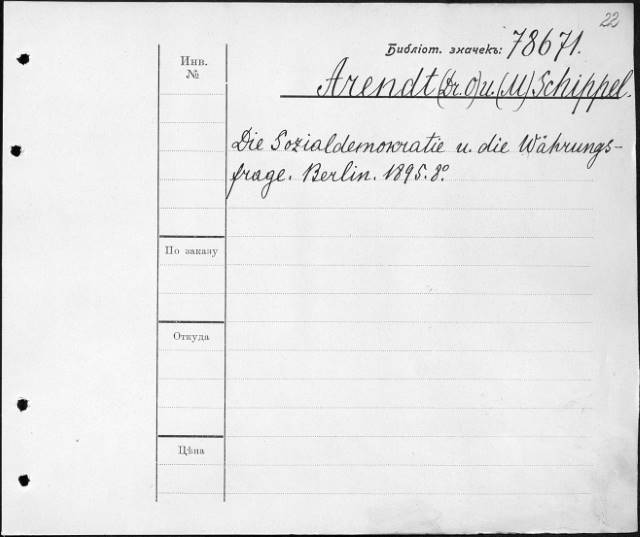 22
Библіот. значекъ: 78671.
Инв.
№
Arendt (Dr. O) u. (M) Schippel.
Die Sozialdemokratie u. die Währungs-
frage. Berlin. 1895. 8º
По заказу
Откуда
Цѣна